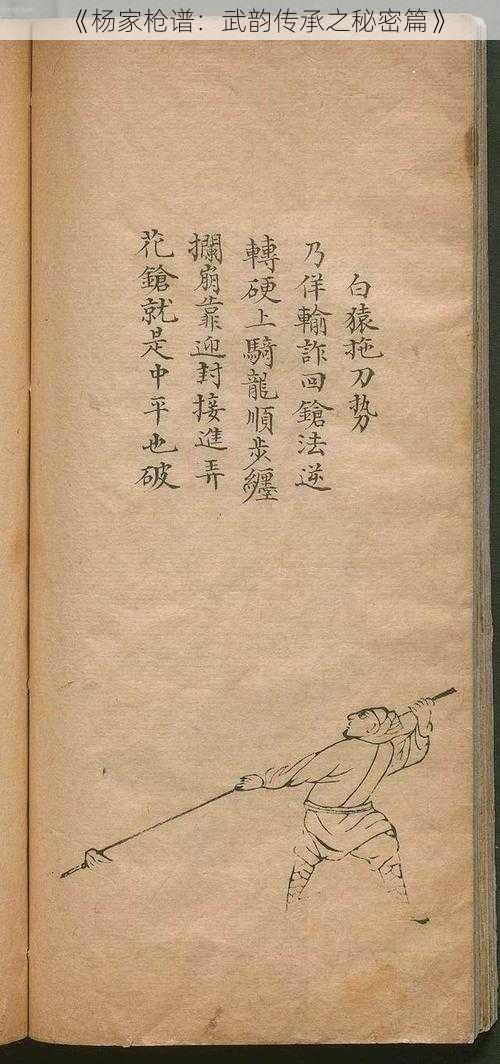 《杨家枪谱：武韵传承之秘密篇》
白猿拖刀势
乃佯輸詐回鎗法逆
轉硬上騎龍順步纏
攔崩靠迎封接進弄
花鎗就是中平也破